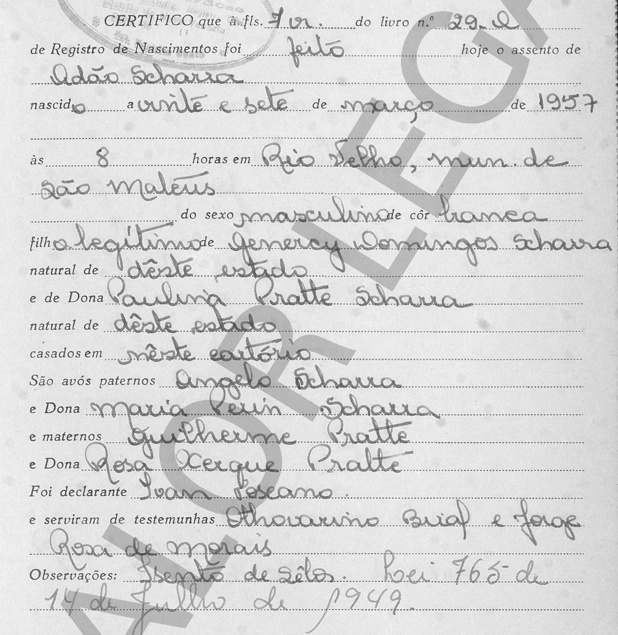 CERTIFICO que à fls. 7 vr. do livro n.º 29-A
de Registro de Nascimentos foi feito hoje o assento de
Adão Scharra
nascido a vinte e sete de março de 1957
às 8 horas em Rio Velho, mun. de
São Mateus
do sexo masculino de côr branca
filho legítimo de Genercy Domingos Scharra
natural de dêste estado
e de Dona Paulina Pratte Scharra
natural de dêste estado
casados em nêste cartório
São avós paternos Angelo Scharra
e Dona Maria Perin Scharra
e maternos Guilherme Pratte
e Dona Rosa Xerque Pratte
Foi declarante Ivan Toscano.
e serviram de testemunhas Othovarino e Jorge
Rosa de Morais
Observações: Isento de sêlos. Lei 765 de
14 de Julho de 1949.
ALOR LEGA